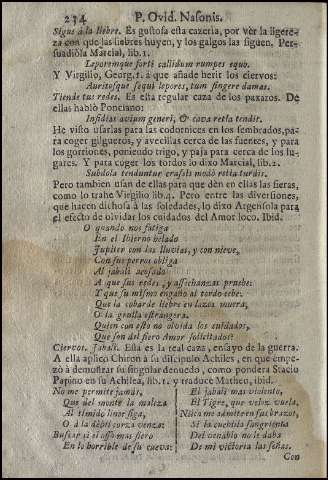 234 P. Ovid. Nasonis.
Sigue à la liebre. Es gustosa esta cazeria, por vèr la ligere-
za con que las liebres huyen, y los galgos las siguen. Per-
suadiòla Marcial, lib. 1.
Leporemque forti callidum rumpes equo.
Y Virgilio, Georg. 1. à que añade herir los ciervos:
Auritosque sequi lepores, tum fingere damas.
Tiende tus redes. Es esta regular caza de los paxaros. De
ellas hablò Ponciano:
Insidias avium generi, & cava retia tendit.
He visto usarlas para las codornices en los sembrados, pa-
ra coger gilgueros, y avecillas cerca de las fuentes, y para
los gorriones, poniendo trigo, y paja para cerca de los lu-
gares. Y para coger los tordos lo dixo Marcial, lib. 2.
Subdola tenduntur crassis modò retia turdis.
Pero tambien usan de ellas para que dèn en ellas las fieras,
como lo trahe Virgilio lib. 4. Pero entre las diversiones,
que hacen dichosa à las soledades, lo dixo Argensola para
el efecto de olvidar los cuidados del Amor loco. Ibid.
O quando nos fatiga
En el Ibierno helado
Jupiter con las lluvias, y con nieve,
Con sus perros obliga
Al jabalì acosado
A que sus redes, y assechanzas pruebe:
Y que su mismo engaño al tordo cebe.
Que la cobarde liebre en lazos muera,
O la grulla estrangera.
Quien con esto no olvida los cuidados,
Que son del fiero Amor solicitados?
Ciervos. Jabalì. Esta es la real caza, ensayo de la guerra.
A ella aplicò Chiron à su discipulo Achiles, en que empe-
zò à demostrar su singular denuedo, como pondera Stacio
Papino en su Achilea, lib. 1. y traduce Matheo, ibid.
No me permite jamàs,
Que del monte la maleza
Al timido lince siga,
O à la debil corza venza:
Buscar sì el osso mas fiero
En lo horrible de su cueva:
El jabalì mas violento,
El Tigre, que veloz vuela,
Nunca me admitere sus brazos,
Si la cuchilla sangrienta
Del venablo no le daba
De mi victoria las señas.
Con